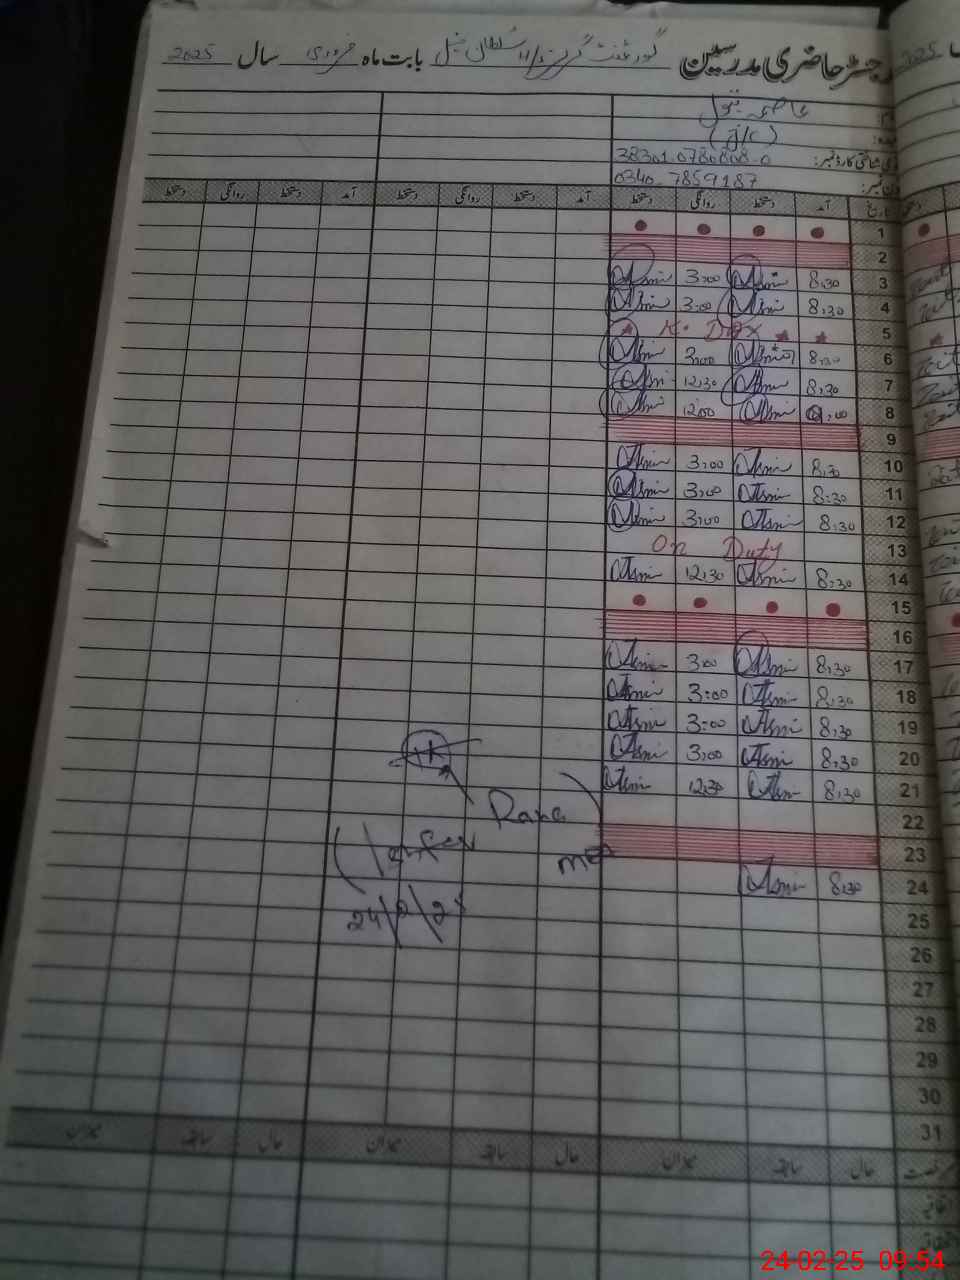 رجسٹر حاضری مدرسین گورنمنٹ گرلز سلطان خیل بابت ماہ فروری سال 2025
2025
(C/J)
38301.0780808-0
0340-7859187
تاریخ آمد دستخط روانگی دستخط آمد دستخط روانگی دستخط آمد دستخط روانگی دستخط
1
2
3 8.30 Asmi 3:00 Asmi
4 8.30 Asmi 3:00 Asmi
5 K. Day
6 8.30 Asmi 3:00 Asmi
7 8.30 Asmi 12.30 Asmi
8 Asmi 12:00 Asmi
9
10 8.30 Asmi 3:00 Asmi
11 8:30 Asmi 3:00 Asmi
12 8:30 Asmi 3:00 Asmi
13 On Duty
14 8:30 Asmi 12.30 Asmi
15
16
17 8.30 Asmi 3:00 Asmi
18 8.30 Asmi 3:00 Asmi
19 8.30 Asmi 3:00 Asmi
20 8.30 Asmi 3:00 Asmi
21 8.30 Asmi 12.30 Asmi
22
23
24 8.30 Asmi
25
26
27
28
29
30
31
24/2/25
رخصت حال سابقہ میزان حال سابقہ میزان حال سابقہ میزان
اتفاقیہ
24-02-25 09:54